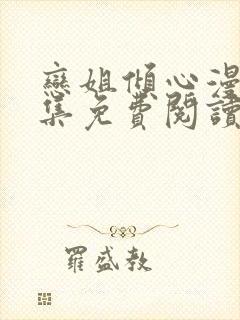 戀姐傾心漫
集免費閱讀
羅盛教